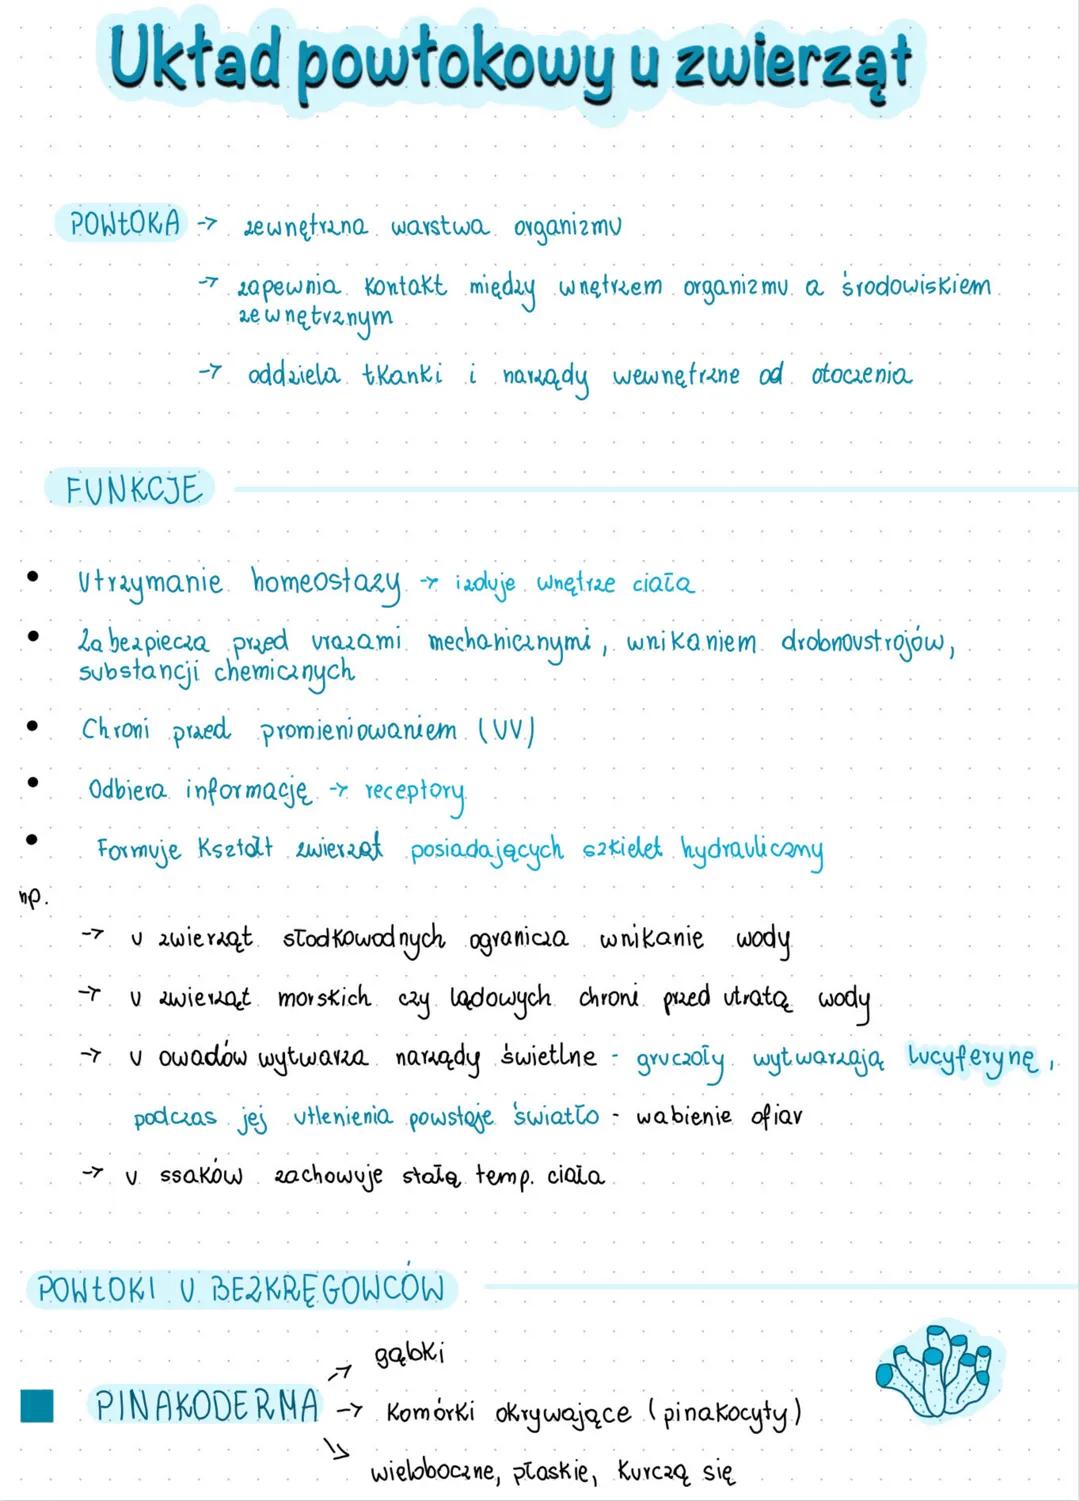 Układ powłokowy u zwierząt
POWŁOKA → zewnętrzna warstwa organizmu
→ zapewnia kontakt między wnętrzem organizmu a środowiskiem
zewnętrznym
→ oddziela tkanki i narządy wewnętrzne od otoczenia
FUNKCJE
• Utrzymanie homeostazy → izoluje wnętrze ciała
• Zabezpiecza przed urazami mechanicznymi, wnikaniem drobnoustrojów,
substancji chemicznych
• Chroni przed promieniowaniem (UV)
• Odbiera informację → receptory
• Formuje kształt zwierząt posiadających szkielet hydrauliczny
np.
→ u zwierząt słodkowodnych ogranicza wnikanie wody
→ u zwierząt morskich czy lądowych chroni przed utratą wody
→ u owadów wytwarza narządy świetlne - gruczoły wytwarzają lucyferynę,
podczas jej utlenienia powstaje światło - wabienie ofiar
→ u ssaków zachowuje stałą temp. ciała
POWŁOKI U BEZKRĘGOWCÓW
→ gąbki
PINAKODERMA → komórki okrywające (pinakocyty)
→ wieloboczne, płaskie, kurczą się